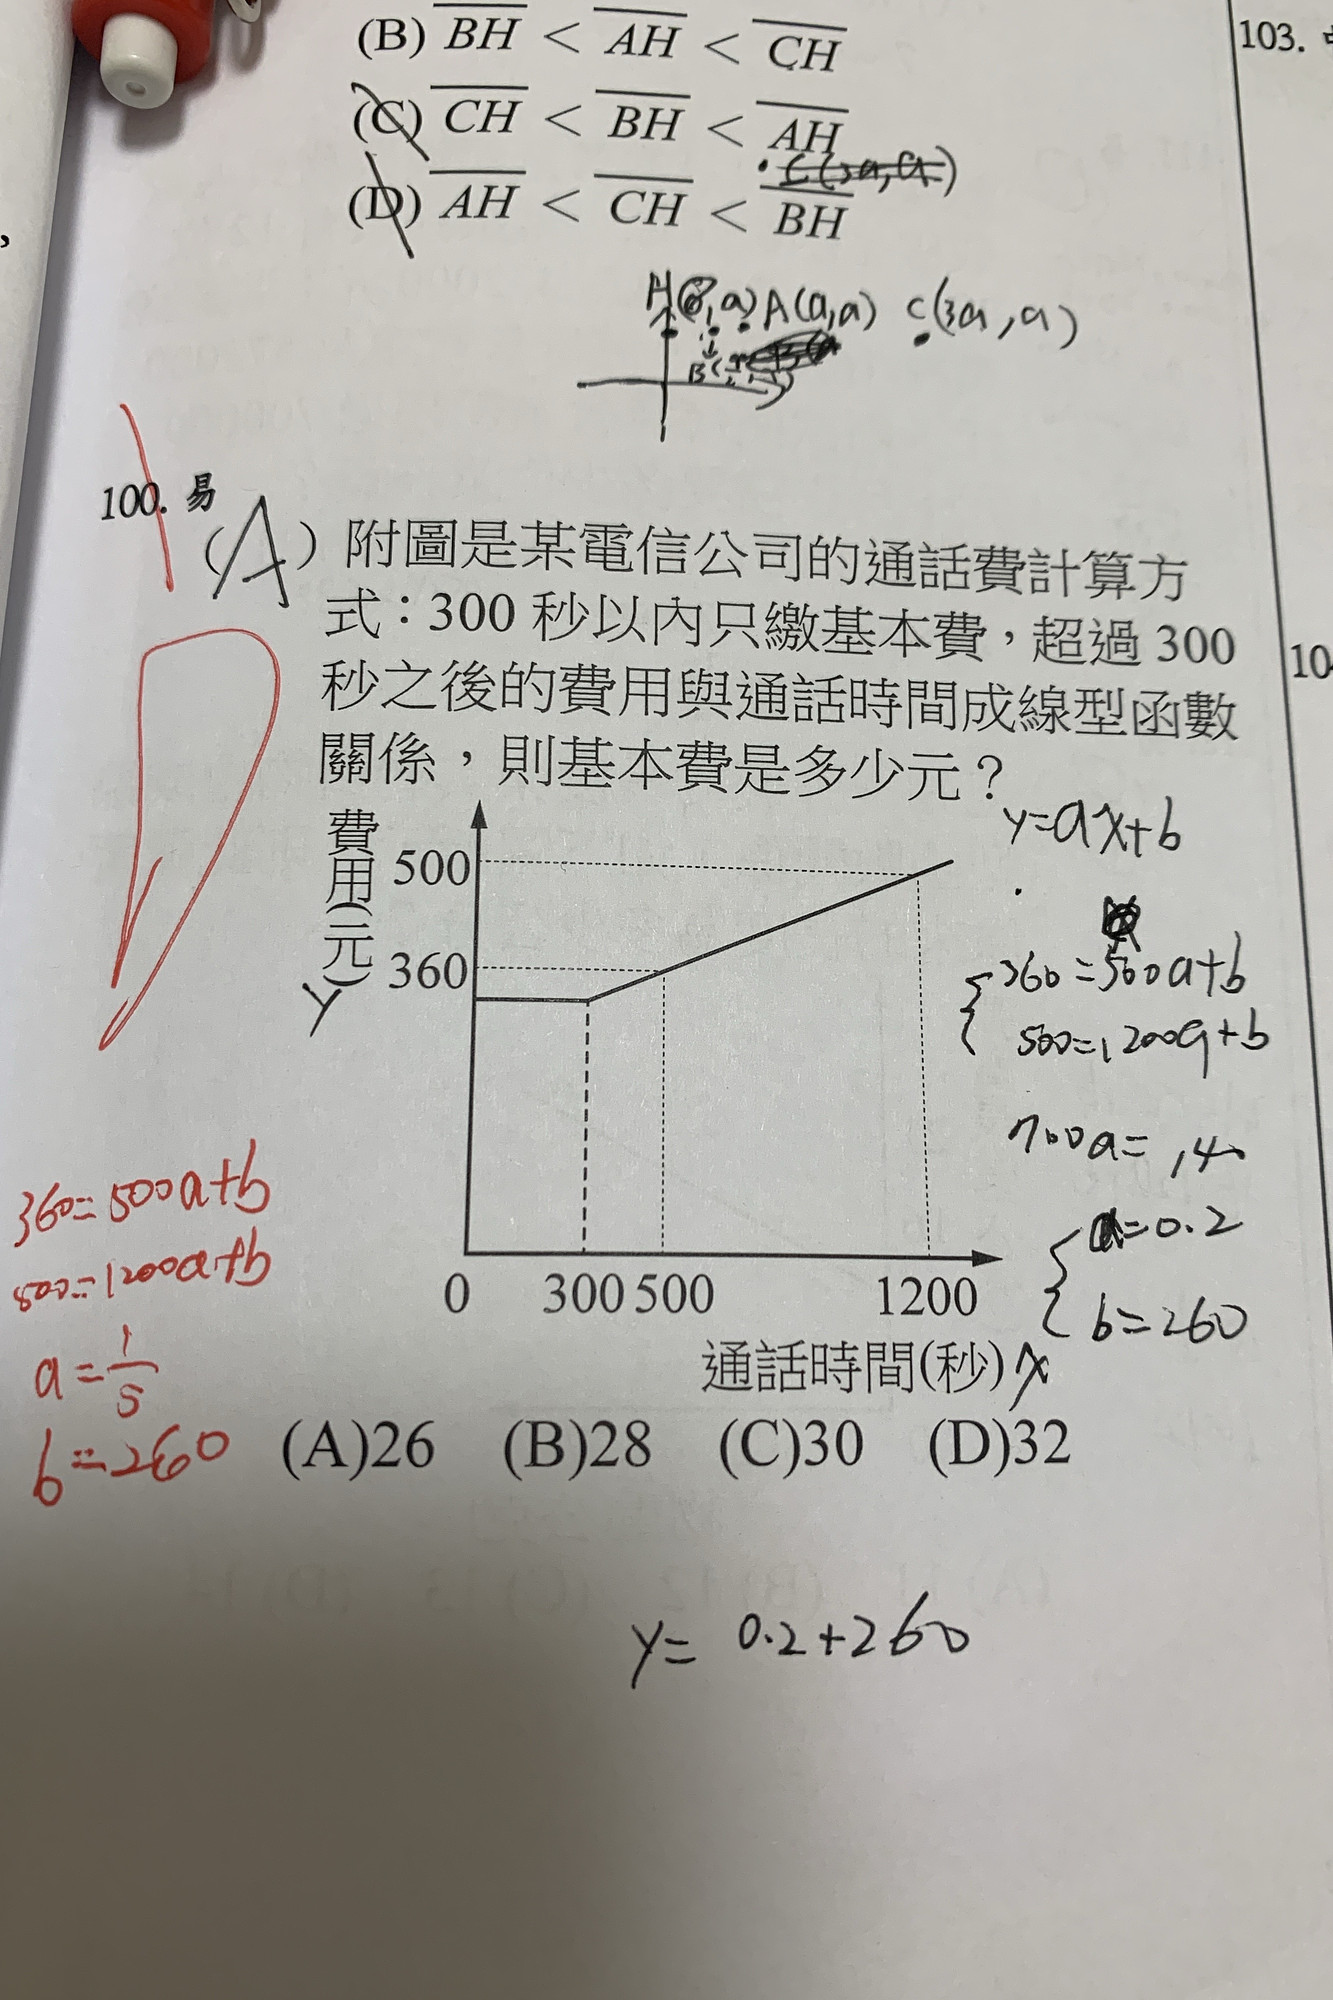 (B) BH < AH < CH
103.
(C) CH < BH < AH
C(3a, a)
(D) AH < CH < BH
,
H(0, a) A(a,a) C(3a, a)
100. 易
(A) 附圖是某電信公司的通話費計算方
式:300 秒以內只繳基本費,超過 300
秒之後的費用與通話時間成線型函數
關係,則基本費是多少元?
10
費用(元)
y
500
360
0
300
500
1200
通話時間(秒) x
y=ax+b
360=500a+b
500=1200a+b
700a=140
a=0.2
b=260
360=500a+b
500=1200a+b
a=1/5
b=260
(A)26 (B)28 (C)30 (D)32
y= 0.2+260